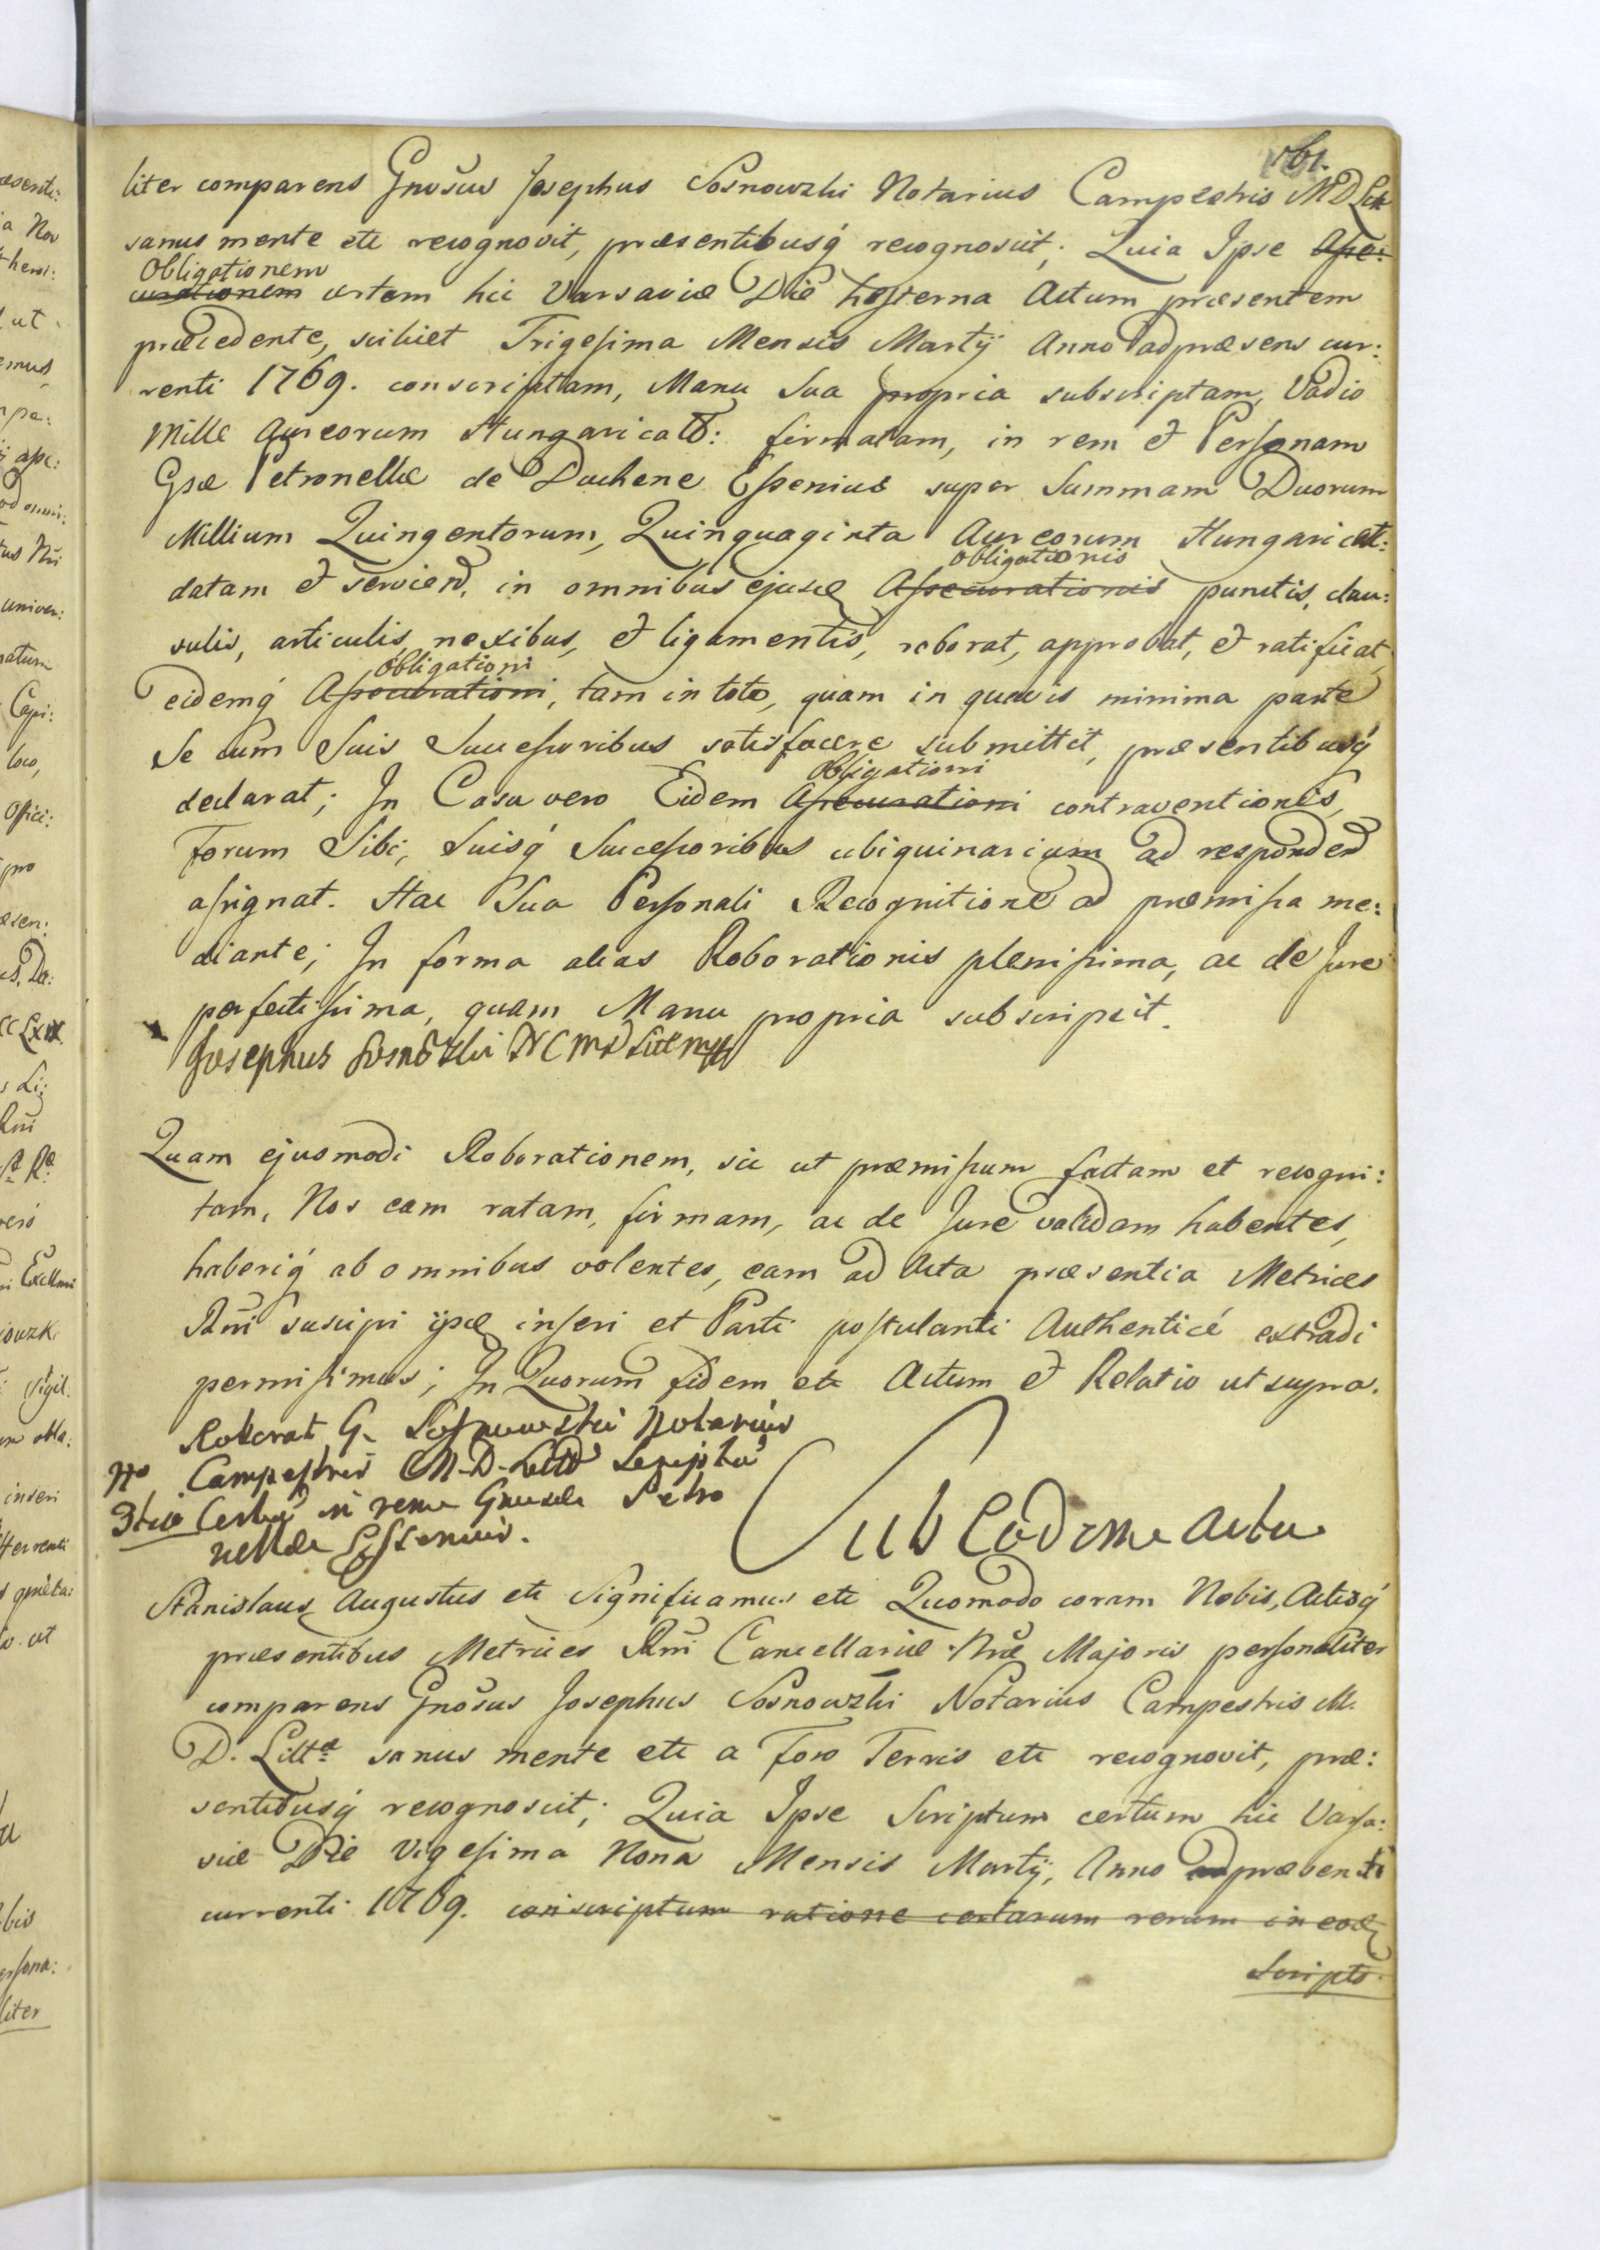 161.
liter comparens Gnosus Josephus Sosnowzki Notarius Campestris M D Litt
sanus mente etc recognovit, præsentibusq́ recognoscit; Quia Ipse Asse:
Obligationem
curationem certam hic Varsaviæ Die hesterna Actum præsentem
præcedente, scilicet Trigesima Mensis Martÿ Anno adpræsens cur:
renti 1769. conscriptam, Manu Sua propria subscriptam, Vadio
Mille Aureorum Hungaricalᵐ: firmatam, in rem et Personam
Gsæ Petronellæ de Duchene Essenius super Summam Duorum
Millium Quingentorum, Quinquaginta Aureorum Hungarical:
obligationis
datam et serviend, in omnibus ejusd Assecurationis punctis, clau:
sulis, articulis, nexibus, et ligamentis, roborat, approbat, et ratificat,
obligationi
eidemq́ Assecurationi, tam in toto, quam in quavis minima parte
Se cum Suis Successoribus satisfacere submittit, præsentibusq́
obligationi
declarat; In Casu vero Eidem Assecurationi contraventionis,
Forum Sibi, Suisq́ Successoribus ubiquinarium ad respondend
assignat. Hac Sua Personali Recognitione ad præmissa me:
diante; In forma alias Roborationis plenissima, ac de Jure
perfectissima, quam Manu propria subscripsit.
Josephus Sosnowzki N C M D Litt mpp
Quam ejusmodi Roborationem, sic ut præmissum factam et recogni:
tam, Nos eam ratam, firmam, ac de Jure validam habentes,
haberiq́ ab omnibus volentes, eam ad Acta præsentia Metrices
Rni suscipi ipsæ inseri et Parti postulanti Authenticé extradi
permisimus; In Quorum fidem etc Actum et Relatio ut supra.
Roborat G. Sosnowski Notarius
Campestris M. D. Litt Scriptu
Certu in rem Gnusdæ Petro
nellæ Essenius.
Sub Eodem Actu
Stanislaus Augustus etc Significamus etc Quomodo coram Nobis, Actisq́
præsentibus Metrices Rni Cancellariæ Nræ Majoris personaliter
comparens Gnosus Josephus Sosnowzki Notarius Campestris M.
D. Littᵃ sanus mente etc a Foro Terris etc recognovit, præ:
sentibusq́ recognoscit; Quia Ipse Scriptum certum hic Varsa:
viæ Die Vigesima Nona Mensis Martÿ, Anno adpræsenti
currenti 1769. conscriptum ratione certarum rerum in eod
Scripto